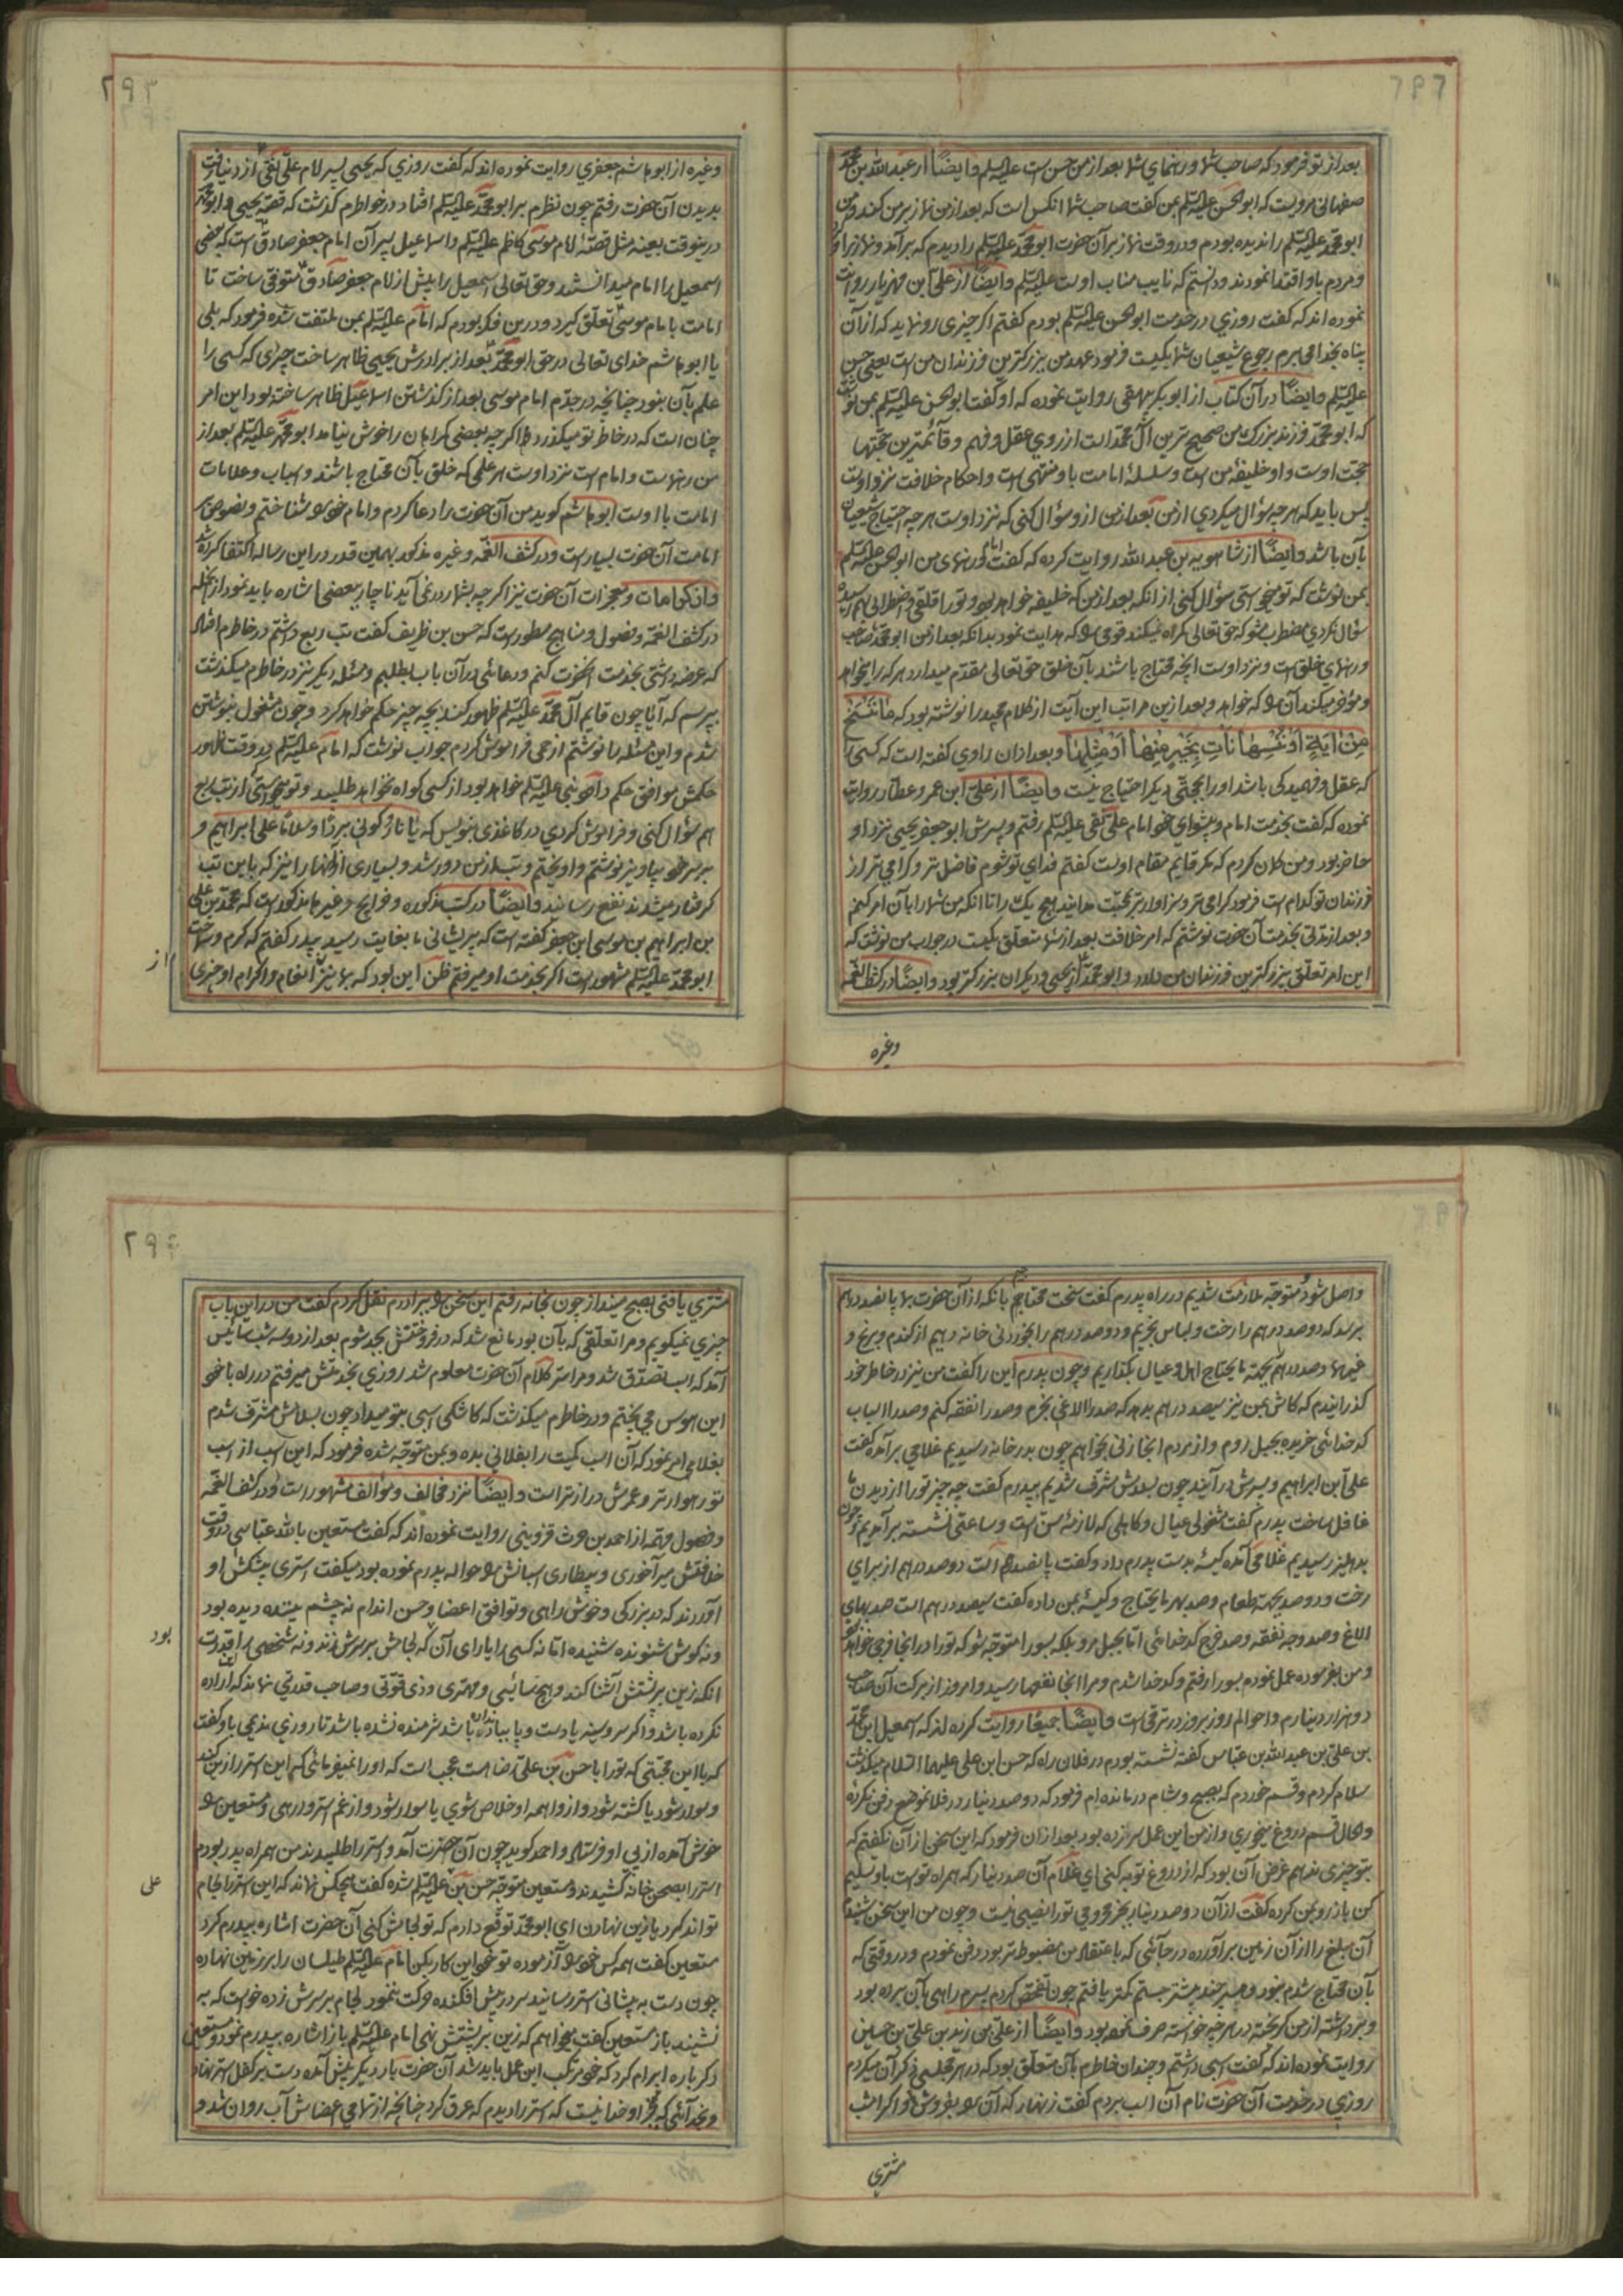 ۲۹۲
بعد از تو فرمود که صاحب شما و رهنمای شما بعد از من حسن است علیه السلم وایضاً از عبدالله بن محمد
صفهانی مرویست که ابوالحسن علیه السلم بمن گفت صاحب شما آنکس است که بعد از من نماز بر من کند و من
ابو محمد علیه السلم را ندیده بودم و در وقت نماز بر آن حضرت ابو محمد علیه السلم را دیدم که بر آمد و نماز بر او
و مردم باو اقتدا نمودند و دانستم که نایب مناب اوست علیه السلم وایضاً از علی ابن مهزیار روایت
نموده اند که گفت روزی در خدمت ابوالحسن علیه السلم بودم گفتم اگر چیزی رو نماید که از آن
پناه بخدا می برم رجوع شیعیان شما بکیست فرمود عهد من ببزرکترین فرزندان من است یعنی حسن
علیه السلم وایضاً در آن کتاب از ابوبکر بیهقی روایت نموده که او گفت ابوالحسن علیه السلم بمن نوشت
که ابو محمد فرزند بزرک من صحیح ترین آل محمد است از روی عقل و فهم و قائمترین حجتها
حجت اوست و او خلیفهٔ من است و سلسلهٔ امامت باو منتهی است و احکام خلافت نزد اوست
پس باید که هر چه سؤال میکردی از من بعد از من از و سؤال کنی که نزد اوست هر چه احتیاج شیعیان
بآن باشد وایضاً از شاهویه بن عبدالله روایت کرده که گفت امام و رهنمای من ابوالحسن علیه السلم
بمن نوشت که تو میخواستی سؤال کنی از آنکه بعد از من که خلیفه خواهد بود و تو را قلقی و اضطرابی بهم رسیده
سؤال نکردی مضطرب مشو که حق تعالی کمراه نمیکند قومی را که هدایت نمود بدانکه بعد از من ابو محمد صاحب
و رهنمای خلق است و نزد اوست آنچه محتاج باشند بآن خلق حق تعالی مقدم میدارد هر که را میخواهد
و مؤخر میکند آن را که خواهد و بعد از ین مراتب این آیت از کلام مجید را نوشته بود که مَا نَنْسَخْ
مِنْ اٰیَةٍ اَوْ نُنْسِهَا نَأتِ بِخَیْرٍ مِنْهَا اَوْ مِثْلِهَا و بعد از آن راوی گفته است که کسی را
که عقل و فهمیدکی باشد او را بحجتی دیکر احتیاج نیست وایضاً از علی ابن عمرو عطار روایت
نموده که گفت بخدمت امام و پیشوای خود امام علی نقی علیه السلم رفتم و پسرش ابو جعفر یحیی نزد او
حاضر بود و من کمان کردم که مکر قایم مقام اوست گفتم فدای تو شوم فاضل تر و کرامی تر از
فرزندان تو کدام است فرمود کرامی تر و سزاوارتر بمحبت مدانید هیچ یک را تا آنکه من شما را بآن امر کنم
و بعد از مدتی بخدمت آن حضرت نوشتم که امر خلافت بعد از شما متعلق بکیست در جواب من نوشت که
این امر تعلق ببزرکترین فرزندان من دارد و ابو محمد از یحیی و دیکران بزرکتر بود وایضاً در کشف الغمه
وغیره
۲۹۳
وغیره از ابو هاشم جعفری روایت نموده اند که گفت روزی که یحیی پسر امام علی نقی از دنیا رفت
بدیدن آن حضرت رفتم چون نظرم بر ابو محمد علیه السلم افتاد در خواطرم کذشت که قصهٔ یحیی و ابو محمد
درینوقت بعینه مثل قصهٔ امام موسی کاظم علیه السلم و اسماعیل پسر آن امام جعفر صادق است که بعضی
اسمعیل را امام میدانستند و حق تعالی اسمعیل را پیش از امام جعفر صادق متوفی ساخت تا
امامت بامام موسی تعلق گیرد و درین فکر بودم که امام علیه السلم بمن ملتفت شده فرمود که بلی
یا ابو هاشم خدای تعالی در حق ابو محمد بعد از برادرش یحیی ظاهر ساخت چیزی که کسی را
علم بآن نبود چنانچه در جدم امام موسی بعد از کذشتن اسماعیل ظاهر ساخته بود این امر
چنان است که در خاطر تو میکذرد اکر چه بعضی کمراهان را خوش نیامد ابو محمد علیه السلم بعد از
من رهنماست و امام است نزد اوست هر علمی که خلق بآن محتاج باشند و اسباب و علامات
امامت با اوست ابو هاشم کوید من آن حضرت را دعا کردم و امام خود را شناختم و نصوص بر
امامت آن حضرت بسیار است و در کشف الغمه و غیره مذکور بهمین قدر در این رساله اکتفا کرده شد
و از کرامات و معجزات آن حضرت نیز اگر چه بشمار در نمی آید ناچار ببعضی اشاره باید نمود از آنجمله
در کشف الغمه و فصول و مناهج مسطور است که حسن بن ظریف گفت تب ربع داشتم در خاطرم افتاد
که عرضه داشتی بخدمت آنحضرت کنم و دعائی در آن باب بطلبم و مسئلهٔ دیکر نیز در خاطرم میکذشت
بپرسم که آیا چون قایم آل محمد علیه السلم ظهور کند بچه چیز حکم خواهد کرد و چون مشغول بنوشتن
شدم و این مسئله را نوشتم از حمی فراموش کردم جواب نوشت که امام علیه السلم در وقت ظهور
حکمش موافق حکم داود نبی علیه السلم خواهد بود از کسی کواه نخواهد طلبید و تو میخواستی از تب ربع
هم سؤال کنی و فراموش کردی در کاغذی بنویس که یا نار کونی بردا وسلاما علی ابراهیم و
بر سر خود بیاویز نوشتم و آویختم و تب از من دور شد و بسیاری از آنها را نیز که باین تب
کرفتار میشدند نفع رسانید وایضاً در کتب مذکوره و غیرها مذکور است که محمد بن علی
بن ابراهیم بن موسی ابن جعفر گفته است که پریشانی ما بغایت رسید پدر گفتم که کرم و سخاوت
ابو محمد علیه السلم مشهور است اکر بخدمت او میرفتم ظن این بود که بما نیز انعام و اکرام او چیزی
از
واصل شود متوجه ملازمت شدیم در راه پدرم گفت سخت محتاجم بآنکه از آن حضرت بما پانصد درهم
برسد که دو صد درهم را رخت و لباس بخریم و دو صد درهم را بخوردنی خانه دهیم از کندم و برنج و
غیرها و صد درهم بجهة مایحتاج اهل و عیال بکذاریم و چون پدرم این را گفت من نیز در خاطر خود
کذرانیدم که کاش بمن نیز سیصد درهم بدهد که صد را الاغی بخرم و صد را نفقه کنم و صد را اسباب
کدخدائی خریده بجبل روم و از مردم آنجا زنی بخواهم چون بدر خانه رسیدیم غلامی برآمده گفت
علی ابن ابراهیم و پسرش در آیند چون بسلامش مشرف شدیم بپدرم گفت چه چیز تو را از دیدن ما
غافل ساخت پدرم گفت مشغولی عیال و کاهلی که لازمهٔ سن است و ساعتی نشسته برآمدیم چون
بدهلیز رسیدیم غلامی آمده کیسهٔ بدست پدرم داد و گفت پانصد درهم است دو صد درهم از برای
رخت و دو صد بجهة طعام و صد بهر مایحتاج و کیسهٔ بمن داده گفت سیصد درهم است صد بهای
الاغ و صد وجه نفقه و صد خرج کدخدائی اما بجبل مرو بلکه بسورا متوجه شو که تو را در آنجا فرجی خواهد بود
و من بفرموده عمل نموده بسورا رفتم و کدخدا شدم و مرا آنجا نفعها رسید و امروز از برکت آن صاحب
دو هزار دینارم و احوالم روز بروز در ترقی است وایضاً جمیعا روایت کرده اند که اسمعیل ابن محمد
بن علی بن عبدالله بن عباس گفته نشسته بودم در فلان راه که حسن ابن علی علیهما السلام میکذشت
سلام کردم و قسم خوردم که بصبح و شام درمانده ام فرمود که دو صد دینار در فلانموضع دفن نکرده
و الحال قسم دروغ میخوری و از من این عمل سر نزده بود بعد از آن فرمود که این سخن از آن نگفتم که
بتو چیزی ندهم غرض آن بود که از دروغ توبه کنی ای غلام آن صد دینار که همراه تو است باو تسلیم
کن باز رو بمن کرده گفت از آن دو صد دینار بجز محرومی تو را نصیبی نیست و چون من این سخن شنیدم
آن مبلغ را از آن زمین برآورده در جائی که باعتقاد من مضبوط تر بود دفن نمودم و در وقتی که
بآن محتاج شدم نبود و هر چند بیشتر جستم کمتر یافتم چون تفحص کردم پسرم راهی بآن برده بود
و برداشته از من کریخته در هر چه خواسته صرف نموده بود وایضاً از علی بن زید بن علی بن حسین
روایت نموده اند که گفت اسبی داشتم و چندان خاطرم بآن متعلق بود که در هر مجلسی ذکر آن میکردم
روزی در خدمت آن حضرت نام آن اسب بردم گفت زنهار که آن را بفروش و اکر امشب
مشتری
۲۹۴
مشتری یافتی بصبح مینداز چون بخانه رفتم این سخن را ببرادرم نقل کردم گفت من در این باب
چیزی نمیکویم و مرا تعلقی که بآن بود مانع شد که در فروختنش بجد شوم بعد از دو سه شب سائیس
آمد که اسب تصدق شد و مرا سر کلام آن حضرت معلوم شد روزی بخدمتش میرفتم در راه با خود
این هوس می پختم و در خاطرم میکذشت که کاشکی اسبی بتو میداد چون بسلامش مشرف شدم
بغلامی امر نمود که آن اسب کمیت را بفلانی بده و بمن متوجه شده فرمود که این اسب از اسب
تو رهوارتر و عمرش درازتر است وایضاً نزد مخالف و مؤالف مشهور است و در کشف الغمه
و فصول مهمه از احمد بن حرث قزوینی روایت نموده اند که گفت مستعین بالله عباسی در وقت
خلافتش میرآخوری و بیطاری اسبانش را حواله پدرم نموده بود میگفت استری پیشکش او
آوردند که در بزرکی و خوش راهی و توافق اعضا و حسن اندام نه چشم بیننده دیده بود
ونه کوش شنونده شنیده اما نه کسی را یارای آن که لجامش بر سرش زند و نه شخصی را قدرت
آنکه زین بر پشتش آشنا کند و هیچ سائیسی و مهتری و ذی قوتی و صاحب قدرتی نماند که این اراده
نکرده باشد و اکر سر و سینه یا دست و پا بباد نداده باشد شرمنده نشده باشد تا روزی ندیمی باو گفت
که با این محبتی که تو را با حسن بن علی رضا هست عجب است که او را نمیفرمائی که این استر را زین کند
و سوار شود یا کشته شود و از واهمه او خلاص شوی یا سوار شود و از غم استر وارهی و مستعین را
خوش آمده از پی او فرستاد و احمد کوید چون آن حضرت آمد و استر را طلبیدند من همراه پدر بودم
استر را بصحن خانه کشیدند و مستعین متوجه حسن بن علیه السلم شده گفت هیچکس نماند که این استر را لجام
تواند کرد یا زین نهادن ای ابو محمد توقع دارم که تو لجامش کنی آن حضرت اشاره بپدرم کرد
مستعین گفت همه کس خود را آزموده تو خود این کار بکن امام علیه السلم طیلسان را بر زمین نهاده
چون دست به پیشانی استر رسانید سر در پیش افکنده حرکت ننمود لجام بر سرش زده خواست که به
نشیند باز مستعین گفت میخواهم که زین بر پشتش نهی امام علیه السلم باز اشاره بپدرم نمود و مستعین
دکر باره ابرام کرد که خود مرتکب این عمل باید شد آن حضرت بار دیکر پیش آمده دست بر کفل استر نهاد
و بخدائی که بجز او خدا نیست که استر را دیدم که عرق کرد چنانچه از تمامی اعضاش آب روان شد و
بود
علی